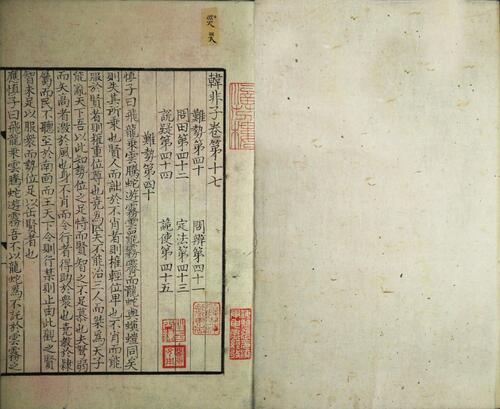 韓非子卷第十七
難勢第四十 問辨第四十一
問田第四十二 定法第四十三
說疑第四十四 詭使第四十五
難勢第四十
慎子曰飛龍乘雲騰蛇遊霧雲罷霧霽而龍蛇與螾螘同矣
則失其所乘也賢人而詘於不肖者則權輕位卑也不肖而能
服於賢者則權重位尊也堯爲匹夫不能治三人而桀爲天子
能亂天下吾以此知勢位之足恃而賢智之不足慕也夫弩弱
而矢高者激於風也身不肖而令行者得助於衆也堯教於隸
屬而民不聽至於南面而王天下令則行禁則止由此觀之賢
智未足以服衆而勢位足以缶賢者也
應慎子曰飛龍乘雲騰蛇遊霧吾不以龍蛇爲不託於雲霧之